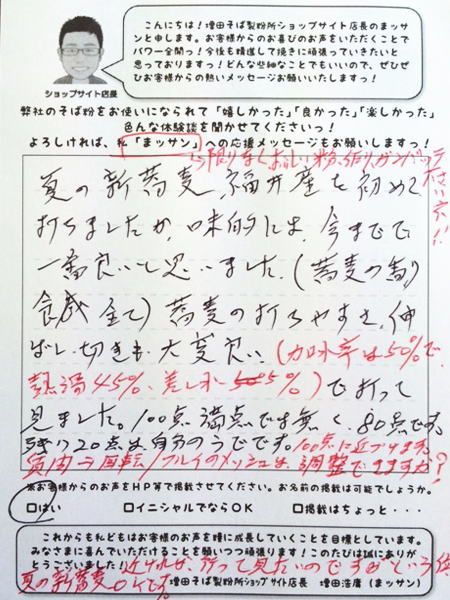 こんにちは！増田そば製粉所ショップサイト店長のまッサ
ンと申します。お客様からのお喜びのお声をいただくことで
パワー全開っ！今後も精進して挽きに頑張っていきたいと
思っておりますっ！どんな些細なことでもいいので、ぜひぜ
ひお客様からの熱いメッセージお願いいたしますっ！
ショップサイト店長
弊社のそば粉をお使いになられて「嬉しかった」「良かった」「楽しかった」
色んな体験談を聞かせてくださいっ！
よろしければ、私「まッサン」への応援メッセージもお願いしますっ！
限りなくおいしい粉、作り、ガンバッテ
下さい
夏の新蕎麦、福井産を初めて
打ちましたが、味的には、今までで
一番良いと思いました。(蕎麦の香り
食感全て)蕎麦の打ちやすさ、伸
ばし、切きも大変良い(加水率は50%で、
熱湯45%、差し水5%)で打って
見ました。100点満点では無く、80点です。
残り20点は自分のうでです。100点に近づけます。
質問 ラ 回転/フルイのメッシュは、調整できますか？
※お客様からのお声をHP等で掲載させてください。お名前の掲載は可能でしょうか。
□はい □イニシャルでならOK □掲載はちょっと・・・
これからも私どもはお客様のお声を糧に成長していくことを目標としています。
みなさまに喜んでいただけることを願いつつ頑張ります！このたびは誠にありが
とうございました！
近ければ、行って見たいのですがという
夏の新蕎麦
増田そば製粉所ショップサイト店長 増田浩庸(まッサン)